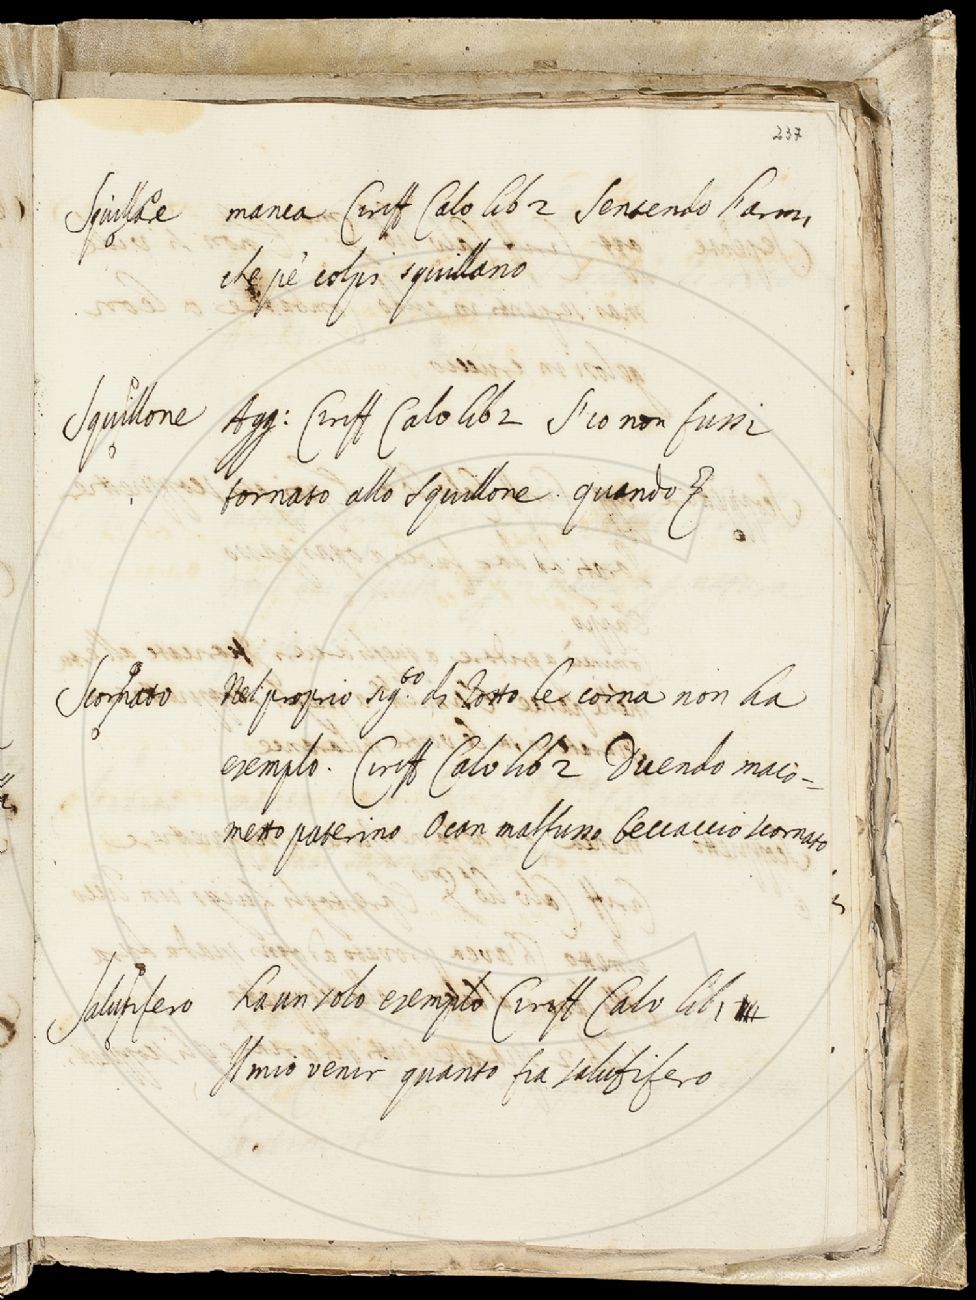 237
Squillare manca Ciriff Calv lib 2 Sentendo l'armi
che pe' colpi squillano
Squillone Agg: Ciriff Calv lib 2 S'io non fussi
tornato allo squillone quando
Scornato Nel proprio sig.to di rotto le corna non ha
exemplo. Ciriff Calv lib 2 Dicendo maco-
metto paterino O can malfusso beccaccio scornato
Salutifero ha un solo exemplo Ciriff Calv lib
Il mio venir quanto fia salutifero